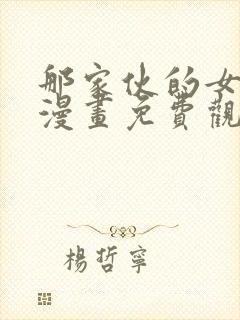 那家伙的女
漫畫免費觀
楊哲寧